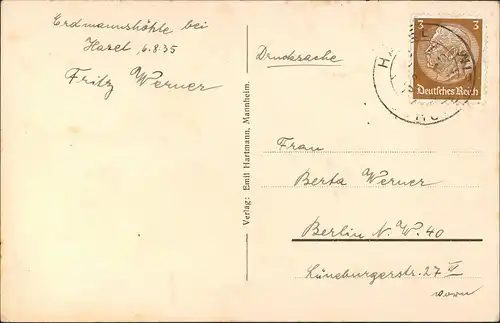 Erdmannshöhle bei
Hasel, 6.8.35
Fritz Werner
Drucksache
3 3
Deutsches Reich
Frau
Berta Werner
Berlin N.W. 40
Lüneburgerstr. 27 IV
vorn
Verlag: Emil Hartmann, Mannheim.